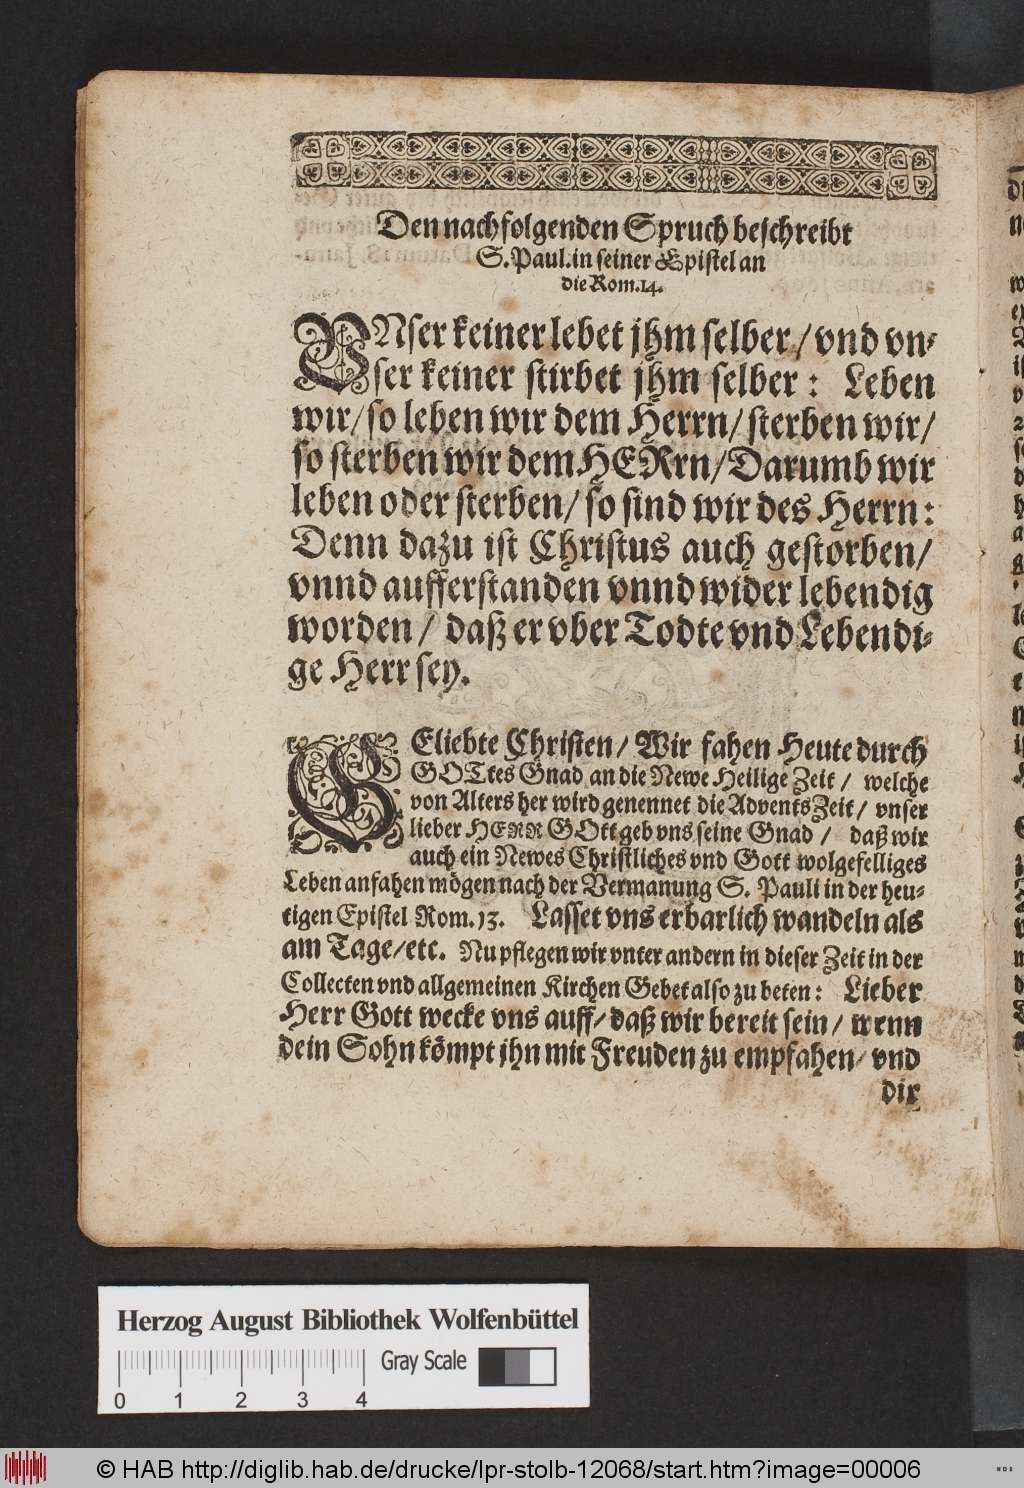 Den nachfolgenden Spruch beschreibt
S. Paul. in seiner Epistel an
die Rom. 14.
VNser keiner lebet jhm selber / vnd vn-
ser keiner stirbet jhm selber: Leben
wir / so leben wir dem Herrn / sterben wir /
so sterben wir dem HERrn / Darumb wir
leben oder sterben / so sind wir des Herrn:
Denn dazu ist Christus auch gestorben /
vnnd aufferstanden vnnd wider lebendig
worden / daß er vber Todte vnd Lebendi-
ge Herr sey.
GEliebte Christen / Wir fahen Heute durch
GOTtes Gnad an die Newe Heilige Zeit / welche
von Alters her wird genennet die Advents Zeit / vnser
lieber HERR GOtt geb vns seine Gnad / daß wir
auch ein Newes Christliches vnd Gott wolgefelliges
Leben anfahen mögen nach der Vermanung S. Pauli in der heu-
tigen Epistel Rom. 13. Lasset vns erbarlich wandeln als
am Tage / etc. Nu pflegen wir vnter andern in dieser Zeit in der
Collecten vnd allgemeinen Kirchen Gebet also zu beten: Lieber
Herr Gott wecke vns auff / daß wir bereit sein / wenn
dein Sohn kömpt jhn mit Freuden zu empfahen / vnd
dir
Herzog August Bibliothek Wolfenbüttel
Gray Scale
0 1 2 3 4
© HAB http://diglib.hab.de/drucke/lpr-stolb-12068/start.htm?image=00006